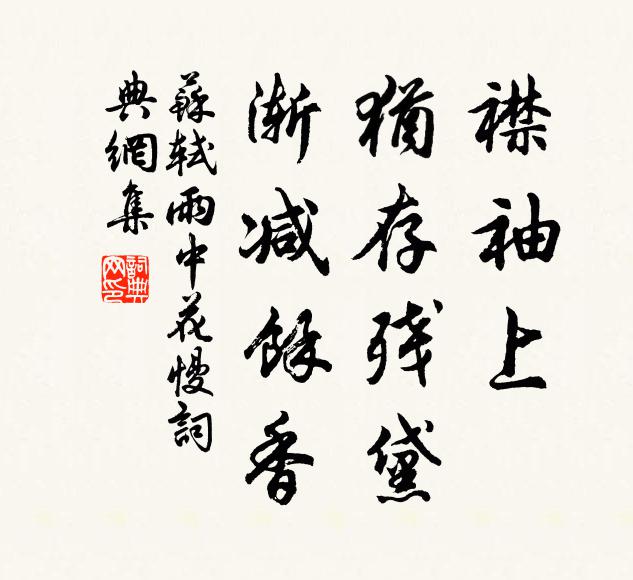 襟袖上
猶存残黛
漸減餘香
蘇軾雨中花慢詞
典網集
詞典网印